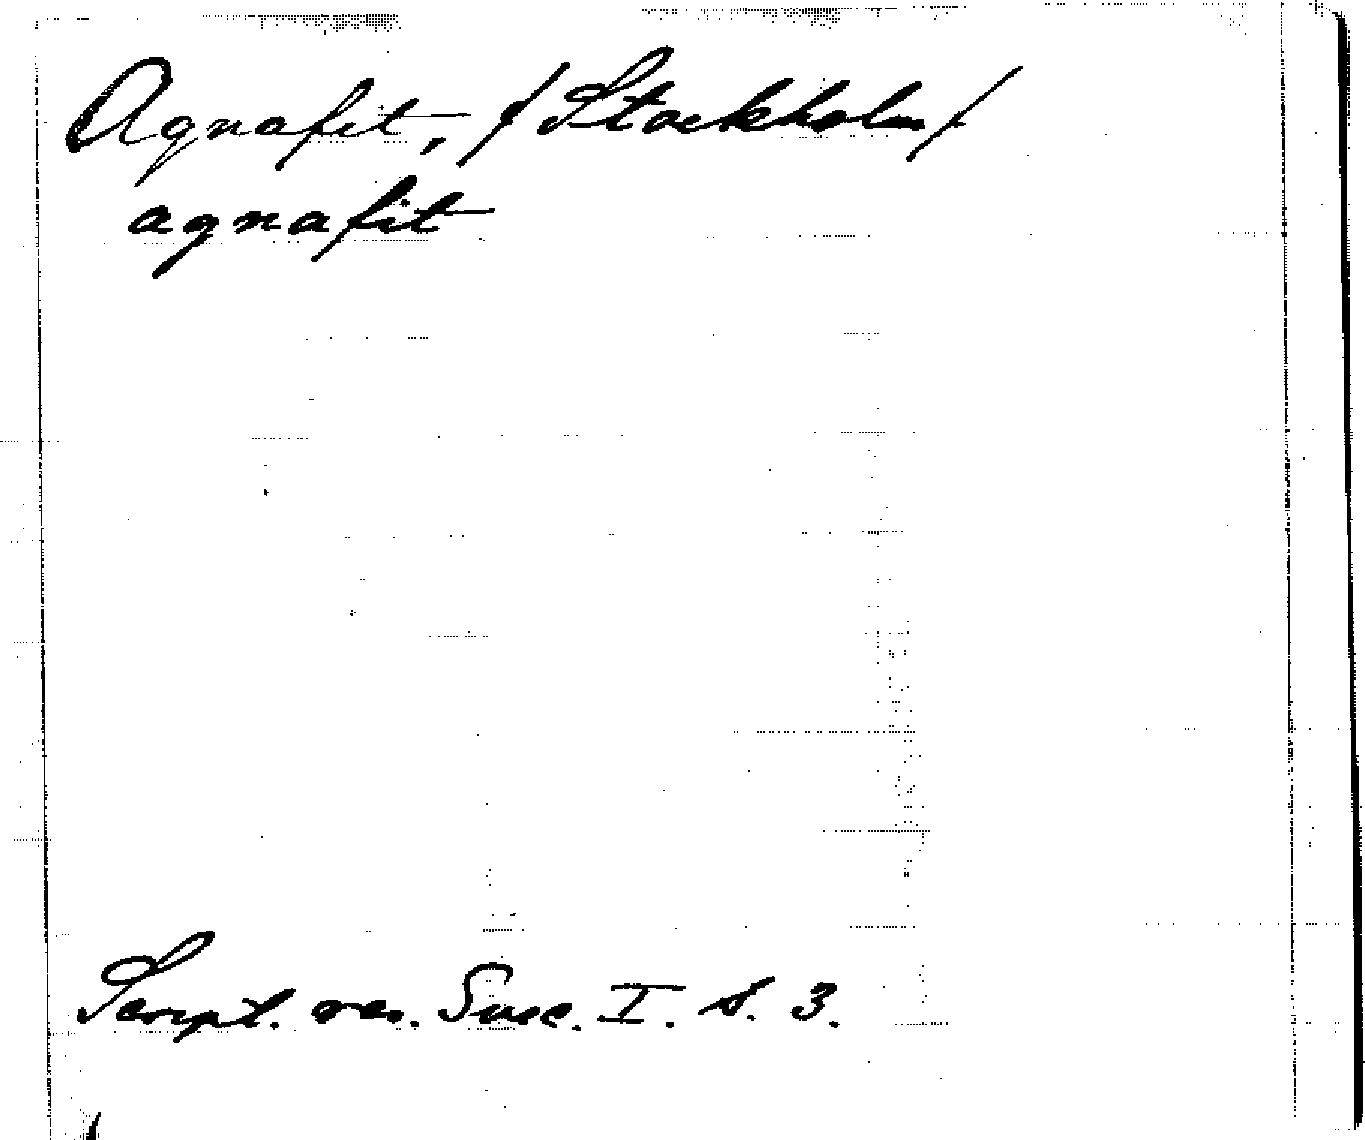 Agnafit, /Stockholm/
agnafit
Script. rer. Suec. I. s. 3.